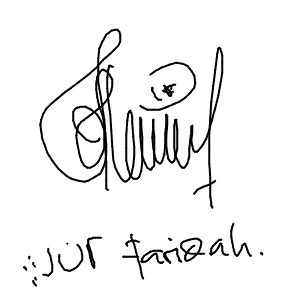 Nur Farizah.